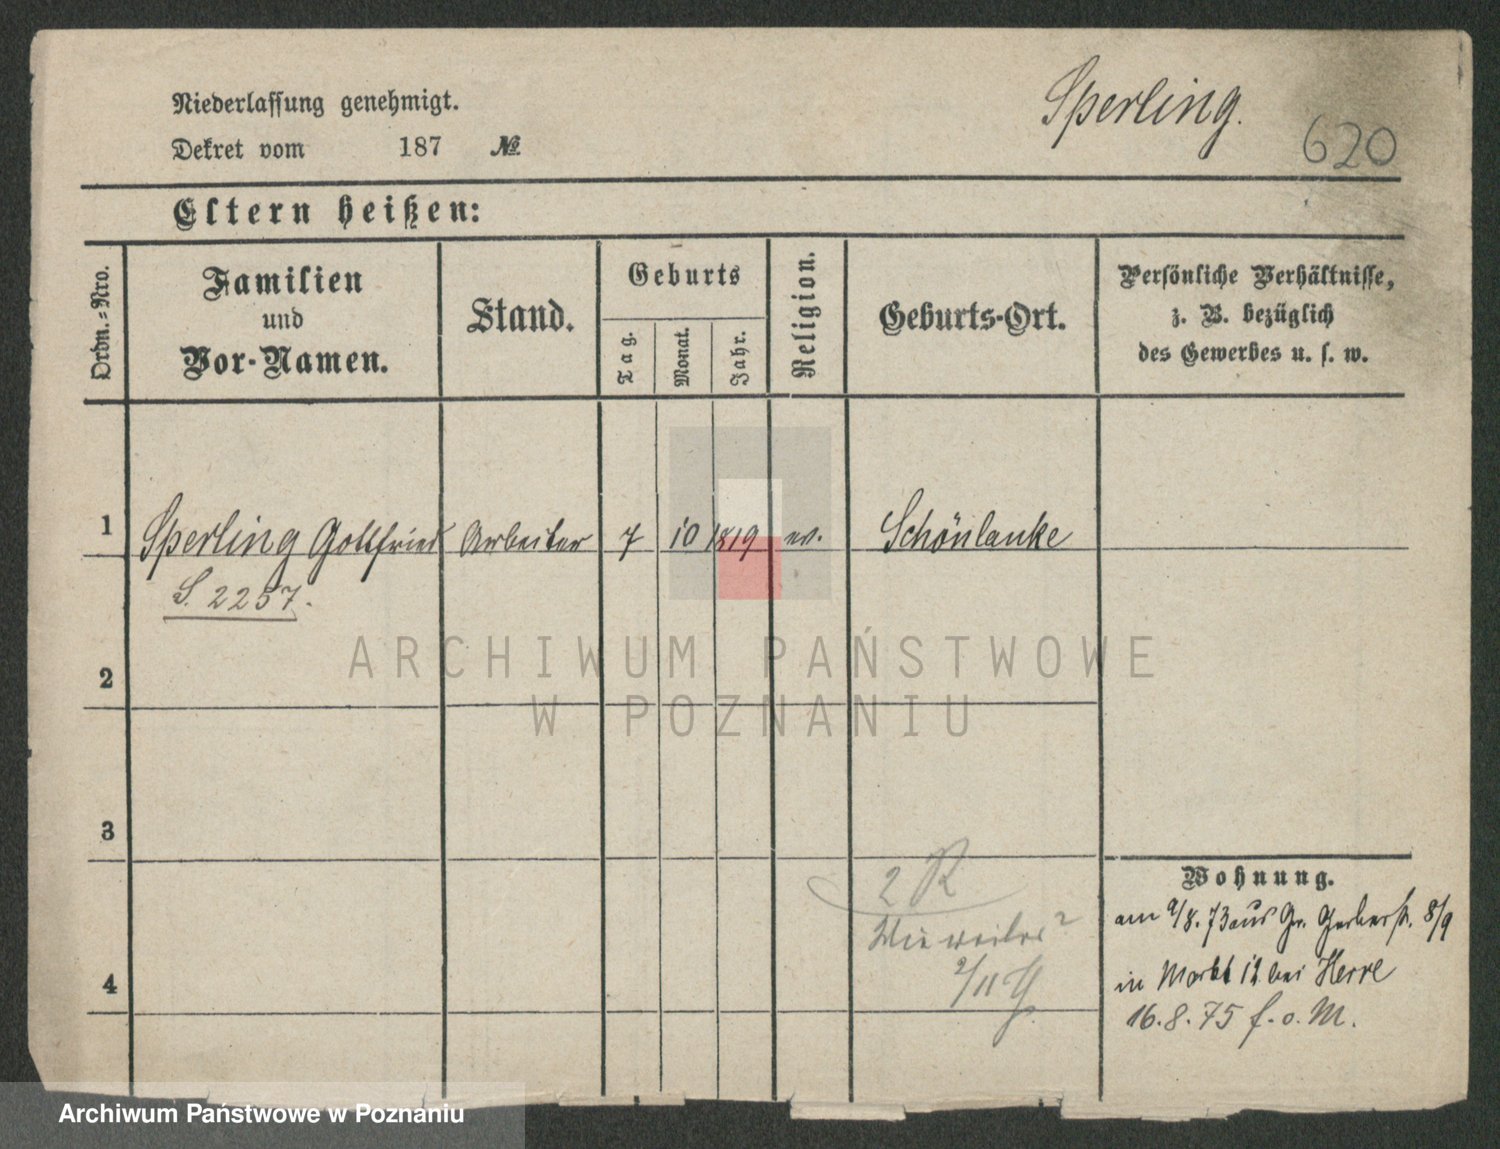 Niederlassung genehmigt.
Dekret vom 187 №
Sperling.
620
Eltern heißen:
Ordn.-Nro.
Familien
und
Vor-Namen.
Stand.
Geburts
Tag.
Monat.
Jahr.
Religion.
Geburts-Ort.
Persönliche Verhältnisse,
z. B. bezüglich
des Gewerbes u. s. w.
1 Sperling Gottfried Arbeiter 7 10 1819 ev. Schönlanke
S. 2257.
2
3
4
2 R
Wie weiter?
2/11
Wohnung.
am 9/8. 73 aus Gr. Gerberst. 8/9
in Markt 12 bei Herre
16. 8. 75 f. o. M.
ARCHIWUM PAŃSTWOWE
W POZNANIU
Archiwum Państwowe w Poznaniu